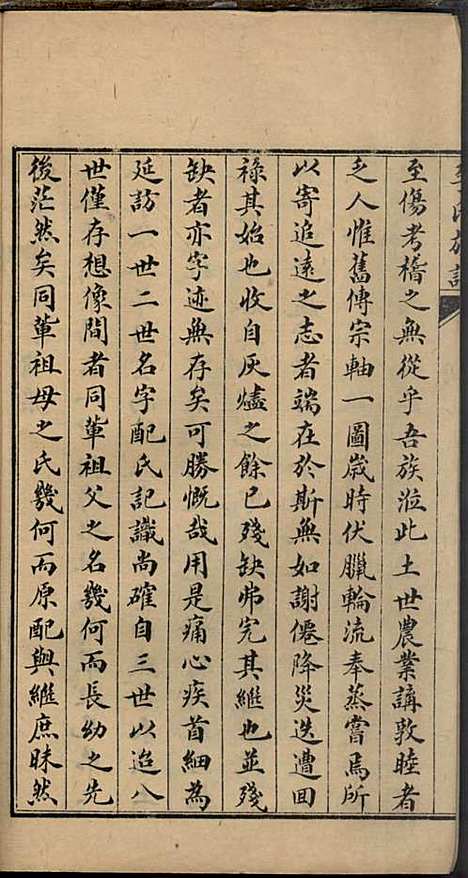 至傷考稽之無從乎吾族涖此土世農業講敦睦者
乏人惟舊傳宗軸一圖歲時伏臘輪流奉蒸嘗焉所
以寄追遠之志者端在於斯無如謝僊降災迭遭回
祿其始也收自灰燼之餘已殘缺弗完其繼也並殘
缺者亦字迹無存矣可勝慨哉用是痛心疾首細為
延訪一世二世名字配氏記識尚確自三世以迨八
世僅存想像間者同輩祖父之名幾何而長幼之先
後茫然矣同輩祖母之氏幾何而原配與繼庶昧然